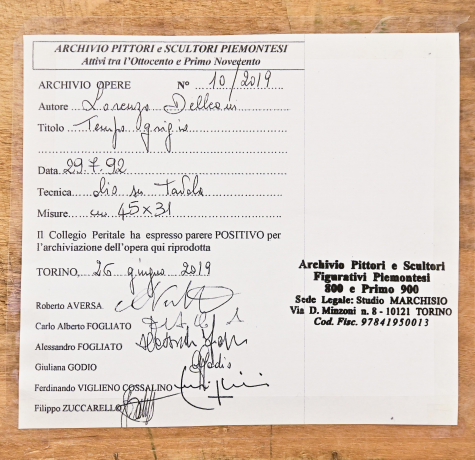 ARCHIVIO PITTORI e SCULTORI PIEMONTESI
Attivi tra l'Ottocento e Primo Novecento
ARCHIVIO OPERE N° 10/2019
Autore Lorenzo Delleani
Titolo Tempo grigio
Data 29.7.92
Tecnica olio su tavola
Misure cm 45x31
Il Collegio Peritale ha espresso parere POSITIVO per
l'archiviazione dell'opera qui riprodotta
TORINO, 26 giugno 2019
Roberto AVERSA
Carlo Alberto FOGLIATO
Alessandro FOGLIATO
Giuliana GODIO
Ferdinando VIGLIENO COSSALINO
Filippo ZUCCARELLO
Archivio Pittori e Scultori
Figurativi Piemontesi
800 e Primo 900
Sede Legale: Studio MARCHISIO
Via D. Minzoni n. 8 - 10121 TORINO
Cod. Fisc. 97841950013